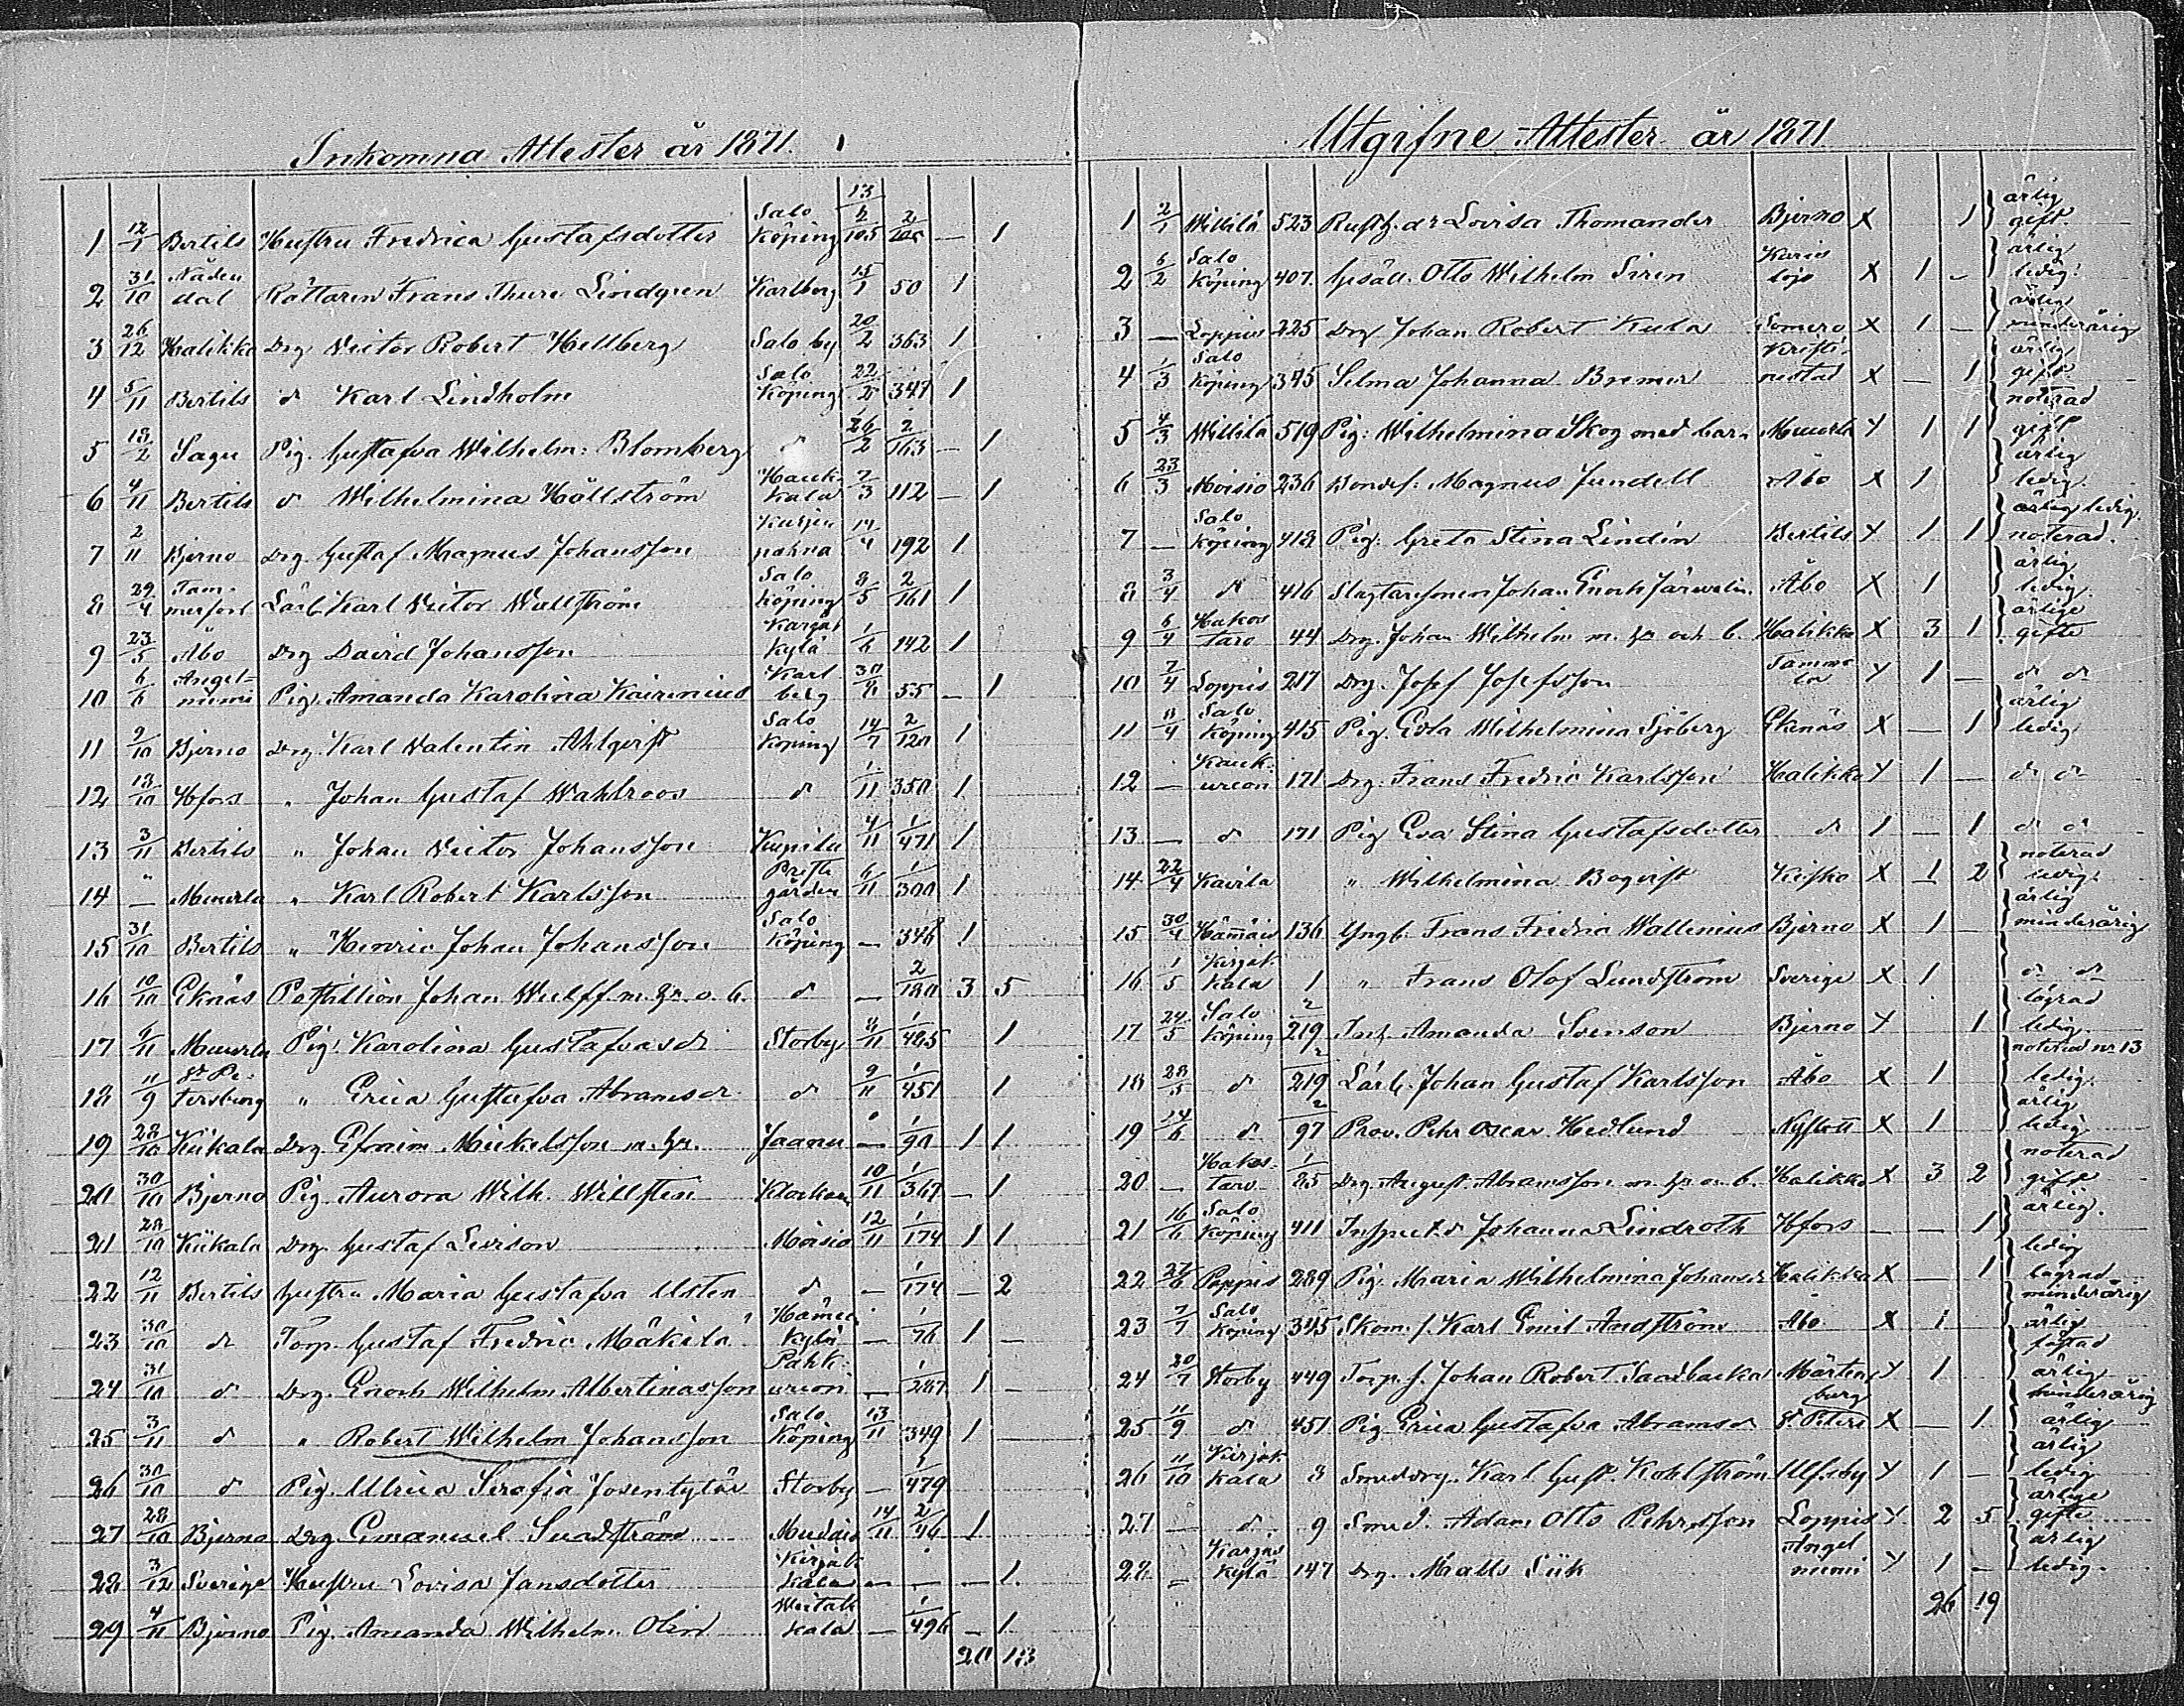 Inkomna Attester år 1871.
1 12/1 Bertils Hustru Fredrica Gustafsdotter Salo Köping 13/2 105 2/105 — 1
2 31/10 Nådendal Rättaren Frans Thure Lindgren Karlberg 15/1 50 1
3 26/12 Halikko Drg Victor Robert Hellberg Salo by 20/2 363 1
4 5/11 Bertils d Karl Lindholm Salo Köping 22/2 347 1
5 13/2 Sagu Pig. Gustafva Wilhelm: Blomberg d 26/2 2/163 — 1
6 4/11 Bertils d Wilhelmina Hällström Haukkala 2/3 112 — 1
7 2/11 Bjerno Drg Gustaf Magnus Johansson 14/4 192 1
8 29/4 Tammerfors Lärl. Karl Victor Wallström Salo Köping 8/5 2/161 1
9 23/5 Åbo Drg David Johansson Karjaskylä 1/6 142 1
10 6/6 Angelniemi Pig. Amanda Karolina Kairenius Karlberg 30/6 55 — 1
11 9/10 Bjerno Drg Karl Valentin Ahlqvist Salo Köping 14/7 2/120 1
12 13/10 Hfors " Johan Gustaf Wahlroos d 1/11 350 1
13 3/11 Bertils " Johan Victor Johansson Kupila 4/11 1/471 1
14 — Muurla " Karl Robert Karlsson Prestgården 6/11 1/300 1
15 31/10 Bertils " Henric Johan Johansson Salo Köping — 346 1
16 10/10 Eknäs Postillion Johan Wulff m. hu o. b. d — 2/180 3 5
17 6/11 Muurla Pig. Karolina Gustafvasdr Storby 8/11 1/465 1
18 11/9 St Petersburg " Erica Gustafva Abramsdr d 9/11 1/451 1
19 28/10 Kiikala Drg Efraim Mickelsson m. hu. Jaanu — 1/90 1 1
20 30/10 Bjerno Pig. Aurora Wilh. Willsten Klockare 10/11 1/367 — 1
21 28/10 Kiikala Drg. Gustaf Levison Moisio 12/11 1/174 1 1
22 12/11 Bertils Hustru Maria Gustafva Ulsten d — 1/174 — 2
23 30/10 d Torp. Gustaf Fredric Mäkilä Hämeenkylä — 1/76 1 —
24 31/10 d Drg. Enoch Wilhelm Albertinasson Pahkurioni — 1/287 1 —
25 3/11 d " Robert Wilhelm Johansson Salo Köping 13/11 349 1 —
26 30/10 d Pig. Ulrica Serafia Josentytär Storby — 1/479
27 28/10 Bjerno Drg Emanuel Sundström 14/11 2/46 1
28 3/12 Sverige Hustru Lovisa Jansdotter Kirjakkala — — — 1
29 4/11 Bjerno Pig. Amanda Wilhelm. Olin — 1/496 — 1
20 18
Utgifne Attester år 1871
1 2/1 Wiliilä 523 Rusth. dr Lovisa Thomander Bjerno X 1 ärlig gift
2 6/2 Salo Köping 407. Gesäll. Otto Wilhelm Siren Karislojo X 1 – ärlig ledig.
3 — Loppis 225 Drg Johan Robert Kula Somero X 1 — ärlig minderårig
4 1/3 Salo Köping 345 Selma Johanna Bremer Kristinestad X — 1 ärlig gift
5 4/3 Wiliilä 519 Pig: Wilhelmina Skog med barn Muurla Y 1 1 noterad gift
6 23/3 Moisio 236 Bondes. Magnus Jundell Åbo X 1 ärlig ledig.
7 — Salo Köping 413 Pig: Greta Stina Lindén Bertils Y 1 1 ärlig ledig. noterad.
8 3/4 d 416 Slagtaresonen Johan Enoch Järvelin. Åbo X 1 ärlig ledig.
9 6/4 Hakostaro 44 Drg. Johan Wilhelm m. hu och b. Halikko X 3 1 ärlige gifte
10 7/4 Loppis 217 Drg. Josef Josefsson Tammela Y 1 — d d
11 8/4 Salo Köping 415 Pig. Edla Wilhelmina Sjöberg Ekenäs X — 1 ärlig ledig
12 — 171 Drg. Frans Fredric Karlsson Halikko Y 1 — d d
13 — d 171 Pig Eva Stina Gustafsdotter d 1 — 1 d d
14 22/4 Kavila " Wilhelmina Boqvist Kisko X 1 2 noterad ledig.
15 30/4 136 Yngl. Frans Fredric Wallenius Bjerno X 1 ärlig minderårig
16 1/5 Kirjakkala 1 " Frans Olof Lundström Sverige X 1 d d
17 24/5 Salo Köping 2/219 Inh. Amanda Svenson Bjerno Y 1 lägrad ledig.
18 28/5 d 2/219 Lärl. Johan Gustaf Karlsson Åbo X 1 noterad nr 13 ledig.
19 14/6 d 2/97 Prov. Pehr Oscar Hedlund Nyslott X 1 ärlig ledig
20 — Hakostaro 1/85 Drg. August Abramsson m. hu o. b. Halikko X 3 2 noterad gift
21 16/6 Salo Köping 411 Inspect.dr Johanna Lindroth Hfors — — 1 ärlig. ledig
22 27/6 Poppis 289 Pig. Maria Wilhelmina Johansdr Halikko X — 1 lägrad
23 7/7 Salo Köping 345 Skom. s. Karl Emil Andström Åbo X 1 minderårig ärlig
24 20/7 Storby 449 Torp. s. Johan Robert Saarbacka Mårtens Y 1 ärlig
25 11/9 d 451 Pig Erica Gustafva Abramsdr St Petersburg X — 1 minderårig ärlig
26 11/10 Kirjakkala 3 Smeddrg. Karl Gust. Kohlström Ulfsby Y 1 — ärlig ledig
27 — d 9 Smed. Adam Otto Pehrsson Loppis Y 2 5 ärlige gifte
28 — Karjaskylä 147 Drg. Matts Siik Angelniemi Y 1 — ärlig ledig.
26 19